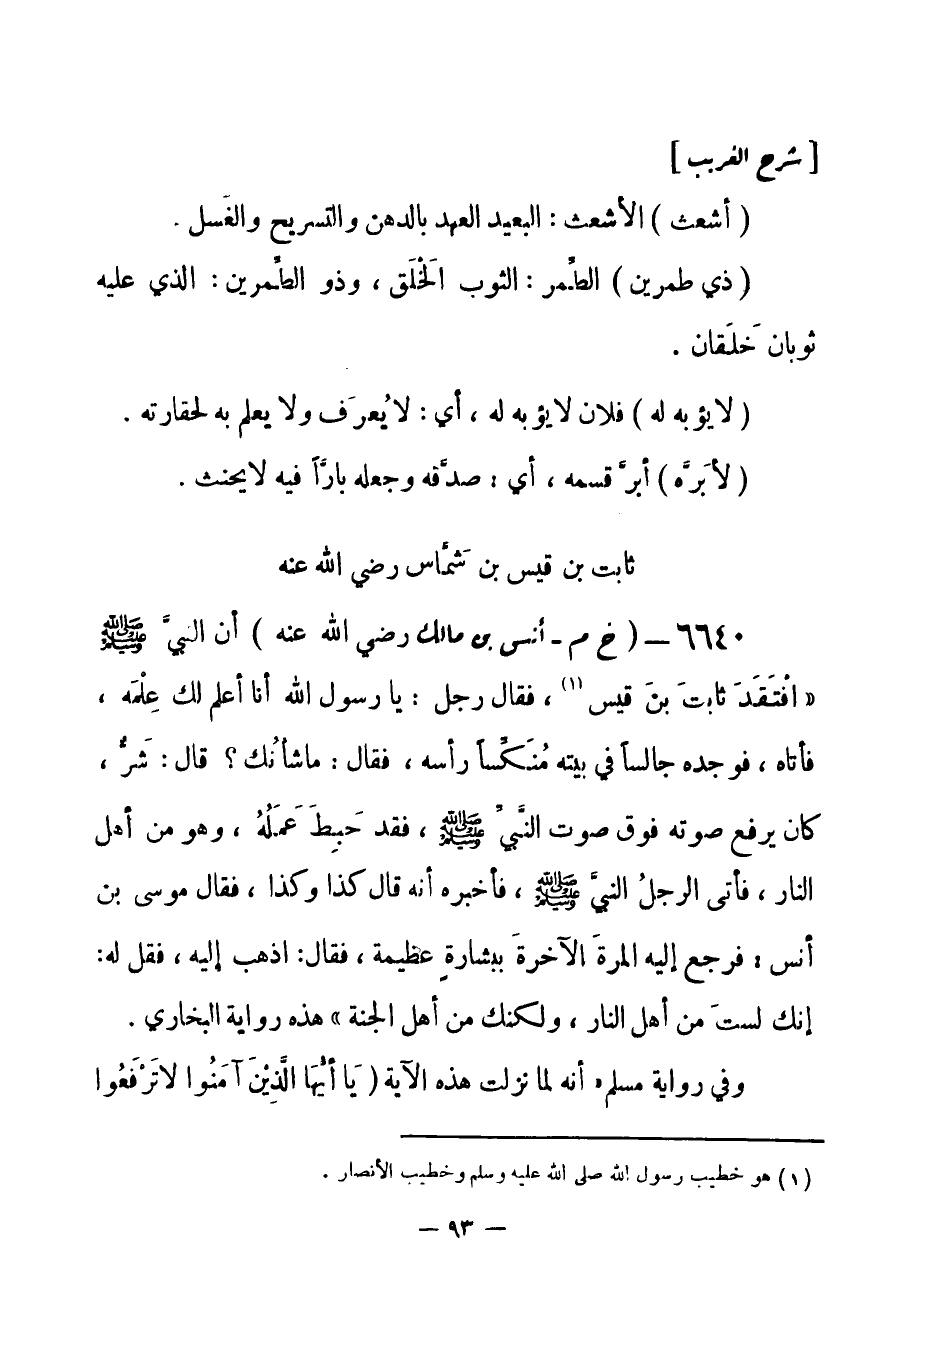 [ شرح الغريب ]
( أشعث ) الأشعث : البعيد العهد بالدهن والتسريح والغَسل .
( ذي طمرين ) الطِّمر : الثوب الخَلَق ، وذو الطِّمرين : الذي عليه
ثوبان خَلَقان .
( لا يؤبه له ) فلان لا يؤبه له ، أي : لا يُعرَف ولا يعلم به لحقارته .
( لأبَرَّه ) أبرَّ قسمه ، أي : صدَّقه وجعله بارَّاً فيه لا يحنث .
ثابت بن قيس بن شَمَّاس رضي الله عنه
٦٦٤٠ – ( خ م - أنس بن مالك رضي الله عنه ) أن النبيَّ ﷺ
« افْتَقَدَ ثابتَ بنَ قيس (١) ، فقال رجل : يا رسول الله أنا أعلم لك عِلْمَه ،
فأتاه ، فوجده جالساً في بيته مُنَكِّساً رأسه ، فقال : ما شأنُك ؟ قال : شَرٌّ ،
كان يرفع صوته فوق صوت النَّبيِّ ﷺ ، فقد حَبِطَ عَمَلُهُ ، وهو من أهل
النار ، فأتى الرجلُ النبيَّ ﷺ ، فأخبره أنه قال كذا وكذا ، فقال موسى بن
أنس : فرجع إليه المرةَ الآخرةَ ببشارةٍ عظيمة ، فقال: اذهب إليه ، فقل له:
إنك لستَ من أهل النار ، ولكنك من أهل الجنة » هذه رواية البخاري .
وفي رواية مسلم « أنه لما نزلت هذه الآية ( يَا أَيُّهَا الَّذِيْنَ آمَنُوا لا تَرْفَعُوا
(١) هو خطيب رسول الله صلى الله عليه وسلم وخطيب الأنصار .
– ٩٣ –